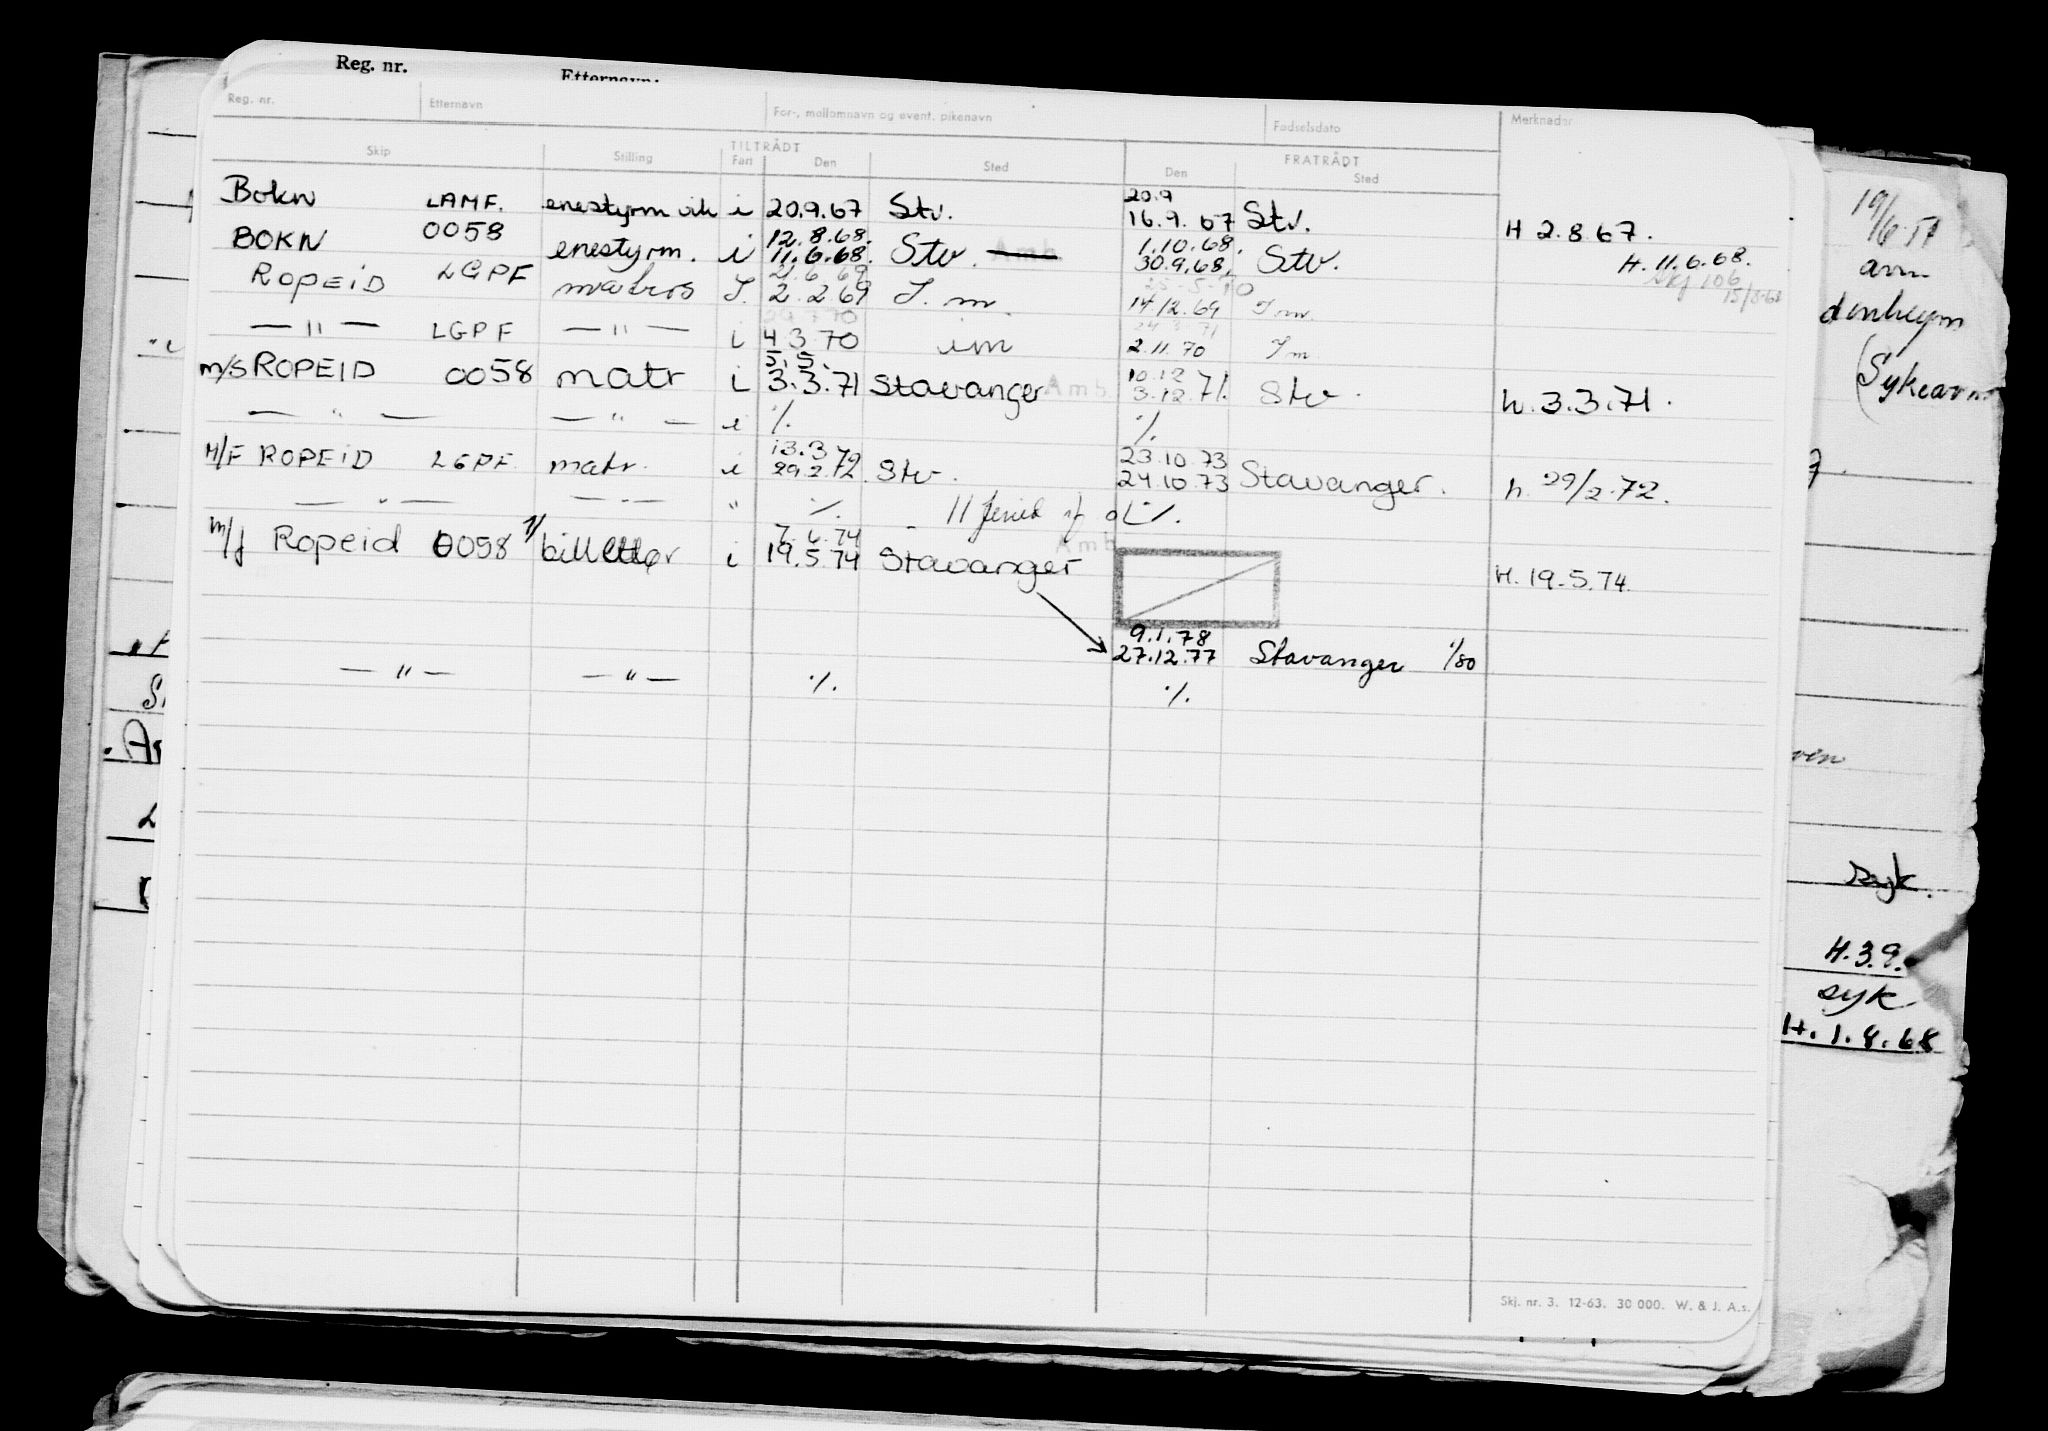 Reg. nr. Etternavn:
Reg. nr. Etternavn For-, mellomnavn og event. pikenavn Fødselsdato Merknader
TILTRÅDT FRATRÅDT
Skip Stilling Fart Den Sted Den Sted
20.9
Bokn LAMF. enestyrm vik i 20.9.67 Stv. 16.9.67 Stv. H 2.8.67.
12.8.68. 1.10.68.
BOKN 0058 enestyrm. i 11.6.68. Stv. Amb 30.9.68. Stv. H. 11.6.68.
21.6 69 25-5-70 106 15/8-68
ROPEID LGPF matros I. 2.2.69 I.m. 14/12.69 I m.
29 7 70 24.3.71
— " — LGPF — " — i 4 3 70 im 2.11.70 I m
5. 5. 10.12
m/s ROPEID 0058 matr i 3.3.71 Stavanger Amb 3.12.71. Stv. h. 3.3.71.
— " — — " — i ./. ./.
13.3 72 23.10.73
M/F ROPEID LGPF matr. i 29.2.72. Stv. 24.10.73 Stavanger. h. 29/2.72.
— " — — " — " ./. ./.
7.6.74 Amb
m/f Ropeid 0058 billettør i 19.5.74 Stavanger H. 19.5.74.
9.1.78
27.12.77 Stavanger 1/80
— " — — " — ./. ./.
Skj. nr. 3. 12-63. 30 000. W. & J. A.s.
19/6.51
avm
(Sykeavm
syk.
H.3.9.
syk
H.1.8.68